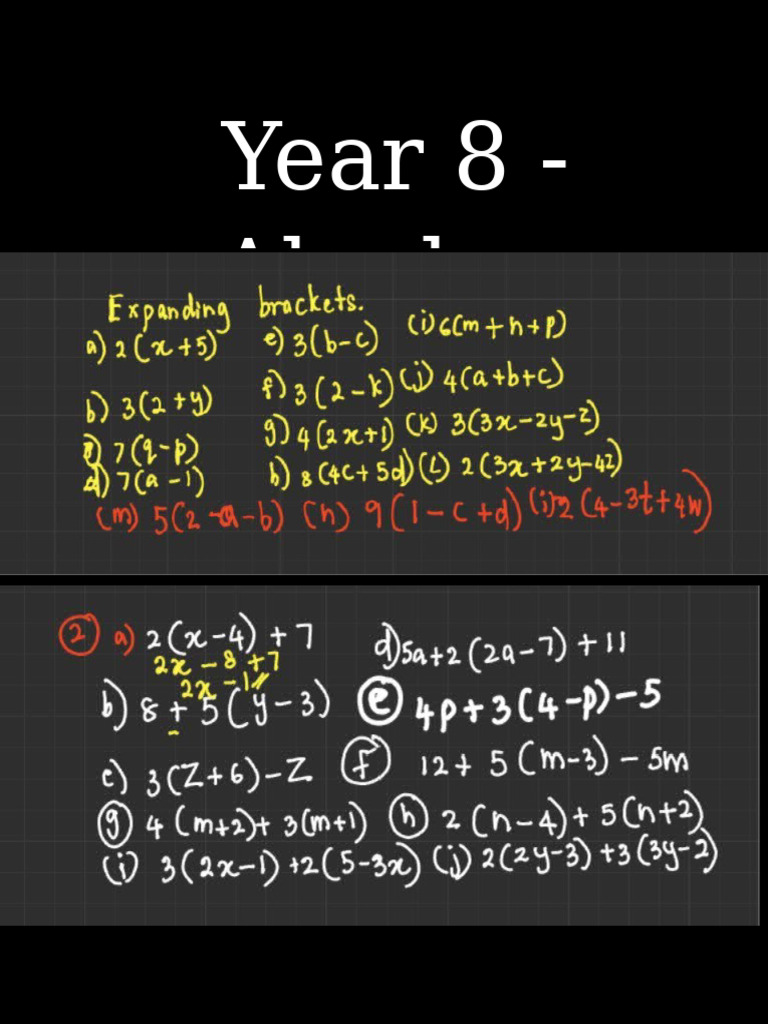 Year 8 -
Expanding brackets.
a) 2(x+5) e) 3(b-c) (i) 6(m+n+p)
b) 3(2+y) f) 3(2-k) (j) 4(a+b+c)
7(q-p) g) 4(2x+1) (k) 3(3x-2y-z)
d) 7(a-1) h) 8(4c+5d) (L) 2(3x+2y-4z)
(m) 5(2-a-b) (n) 9(1-c+d) (i) 2(4-3t+4w)
2 a) 2(x-4)+7 d) 5a+2(2a-7)+11
2x-8+7
2x-1
b) 8+5(y-3) e 4p+3(4-p)-5
c) 3(z+6)-z f 12+5(m-3)-5m
g 4(m+2)+3(m+1) h 2(n-4)+5(n+2)
(i) 3(2x-1)+2(5-3x) (j) 2(2y-3)+3(3y-2)